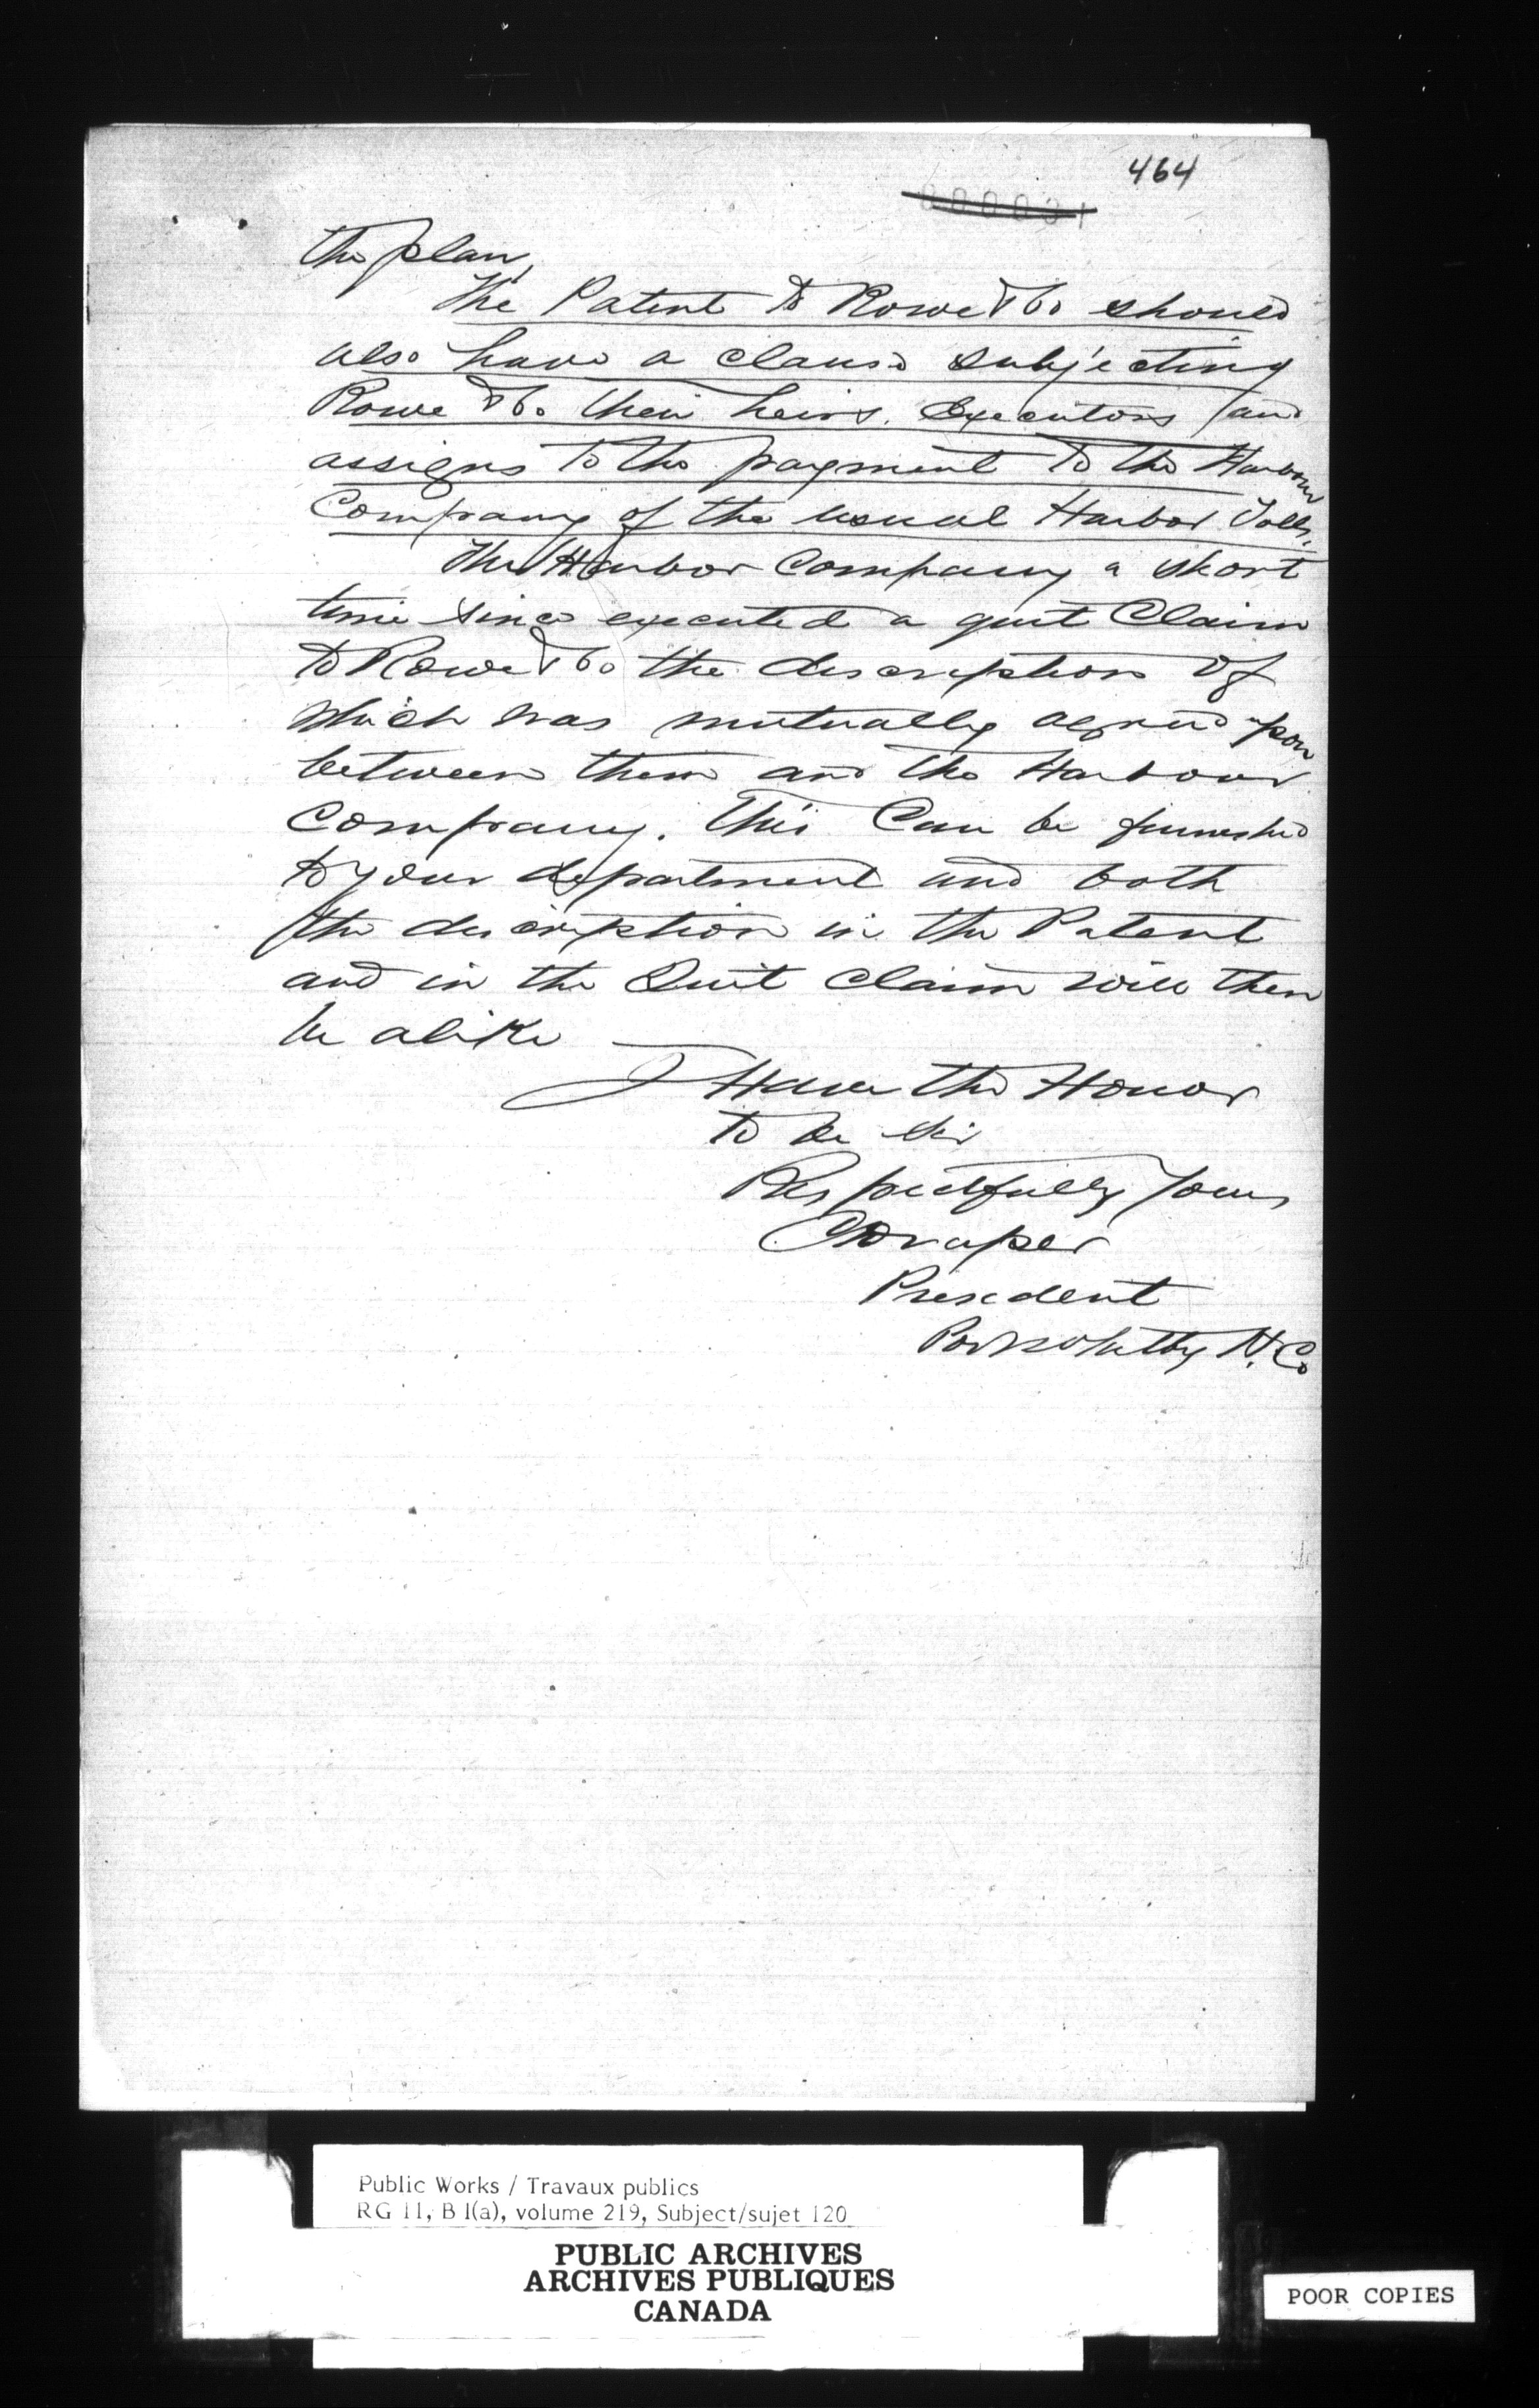 464
000031
the plan,
The Patent to Rowe & Co should
also have a clause subjecting
Rowe & Co their heirs. Executors and
assigns to the payment to the Harbour
Company of the usual Harbor Tolls.
The Harbor Company a short
time since executed a quit Claim
to Rowe & Co the description of
which was mutually agreed upon
between them and the Harbour
Company. This Can be furnished
to your department and both
the description in the Patent
and in the Quit Claim will then
be alike
I Have the Honor
to be Sir
Respectfully Yours
Draper
President
Port Whitby H. Co
Public Works / Travaux publics
RG 11, B 1(a), volume 219, Subject/sujet 120
PUBLIC ARCHIVES
ARCHIVES PUBLIQUES
CANADA
POOR COPIES